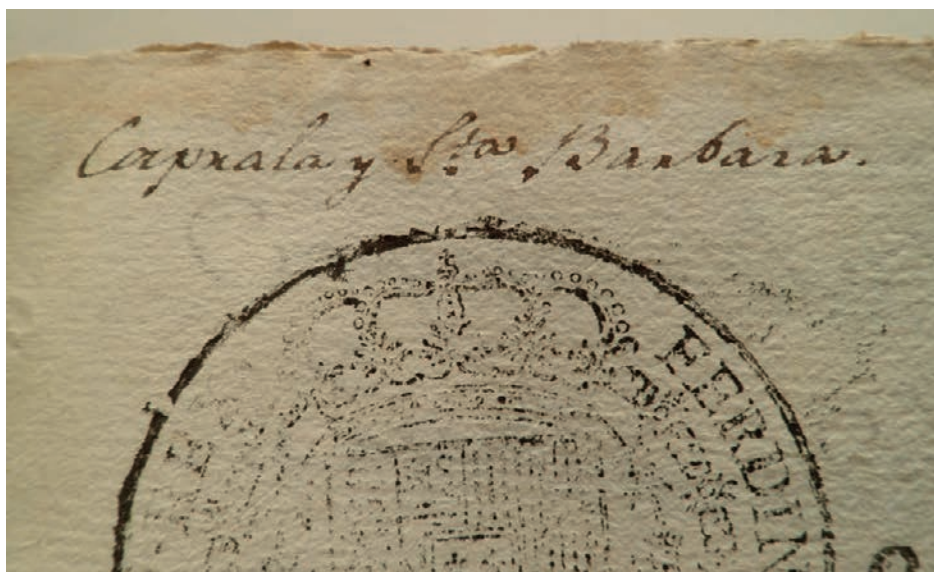 Caprala y Sta. Barbara.
FERDIN